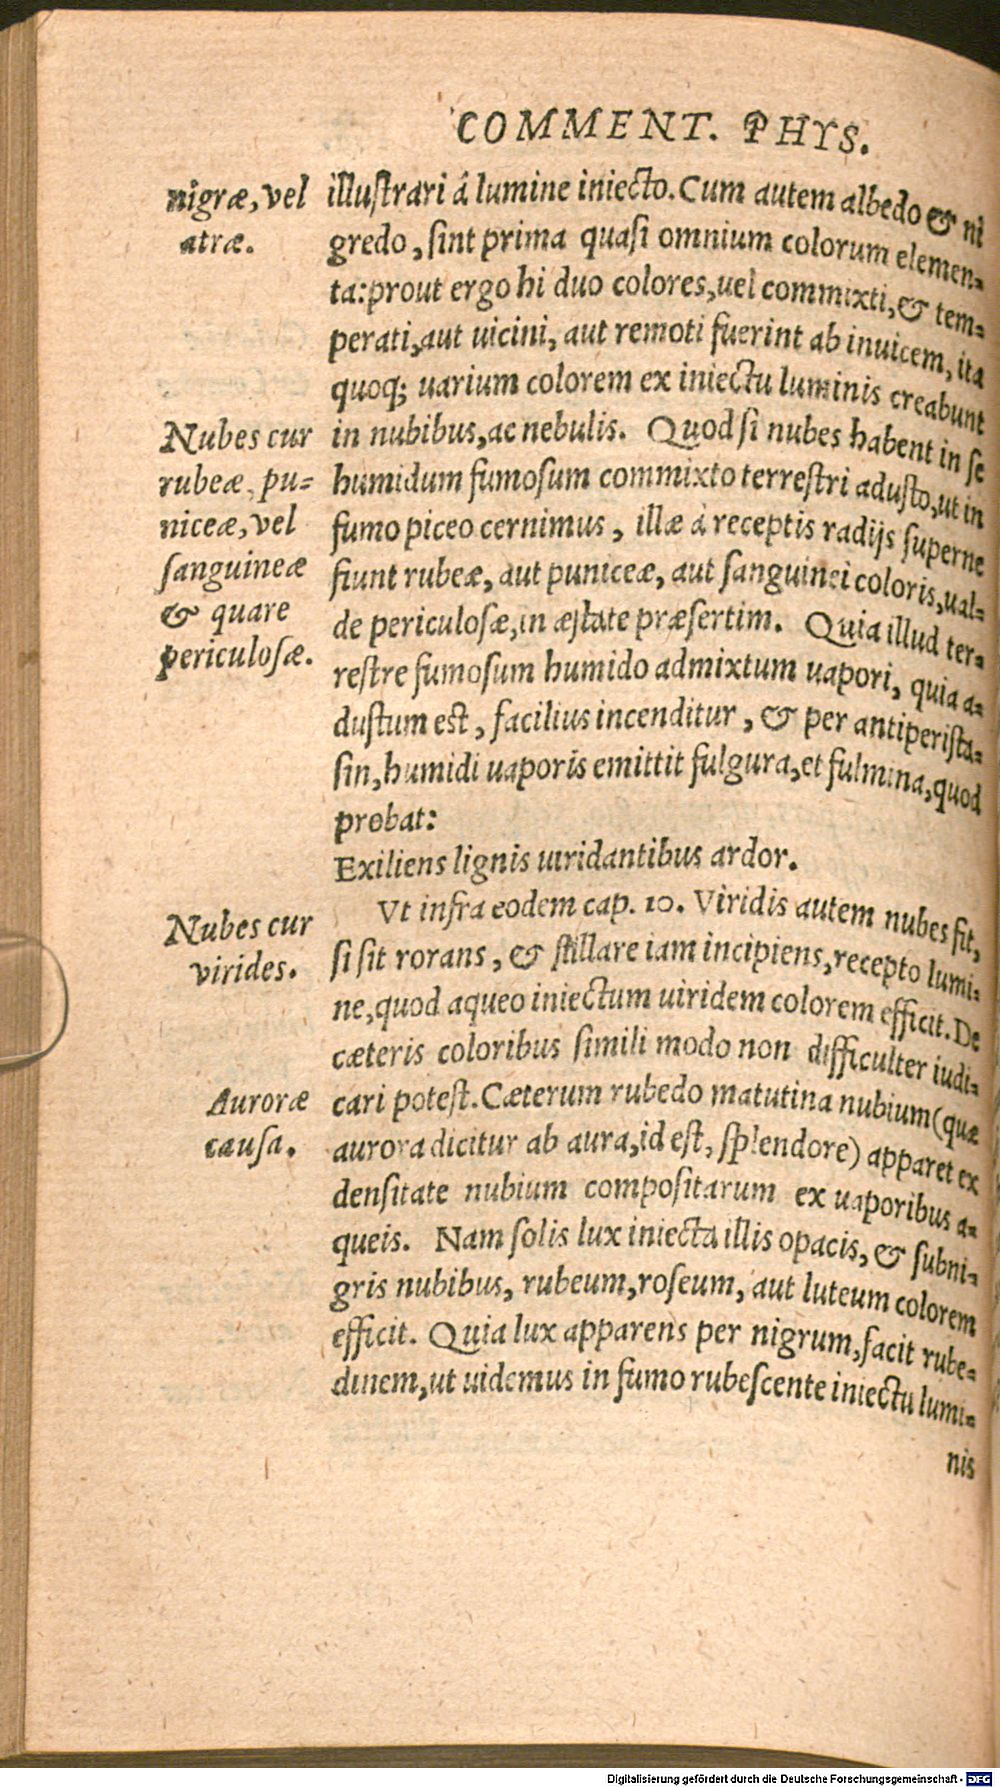 COMMENT. PHYS.
nigræ, vel
atræ.
illuſtrari à lumine iniecto. Cum autem albedo & ni
gredo, ſint prima quaſi omnium colorum elemen-
ta: prout ergo hi duo colores, uel commixti, & tem-
perati, aut uicini, aut remoti fuerint ab inuicem, ita
quoq; uarium colorem ex iniectu luminis creabunt
in nubibus, ac nebulis. Quod ſi nubes habent in ſe
humidum fumoſum commixto terreſtri aduſto, ut in
fumo piceo cernimus, illæ à receptis radijs ſuperne
fiunt rubeæ, aut puniceæ, aut ſanguinei coloris, ual-
de periculoſæ, in æſtate præſertim. Quia illud ter-
reſtre fumoſum humido admixtum uapori, quia a-
duſtum eſt, facilius incenditur, & per antiperiſta-
ſin, humidi uaporis emittit fulgura, et fulmina, quod
probat:
Nubes cur
rubeæ, pu-
niceæ, vel
ſanguineæ
& quare
periculoſæ.
Exiliens lignis uiridantibus ardor.
Vt infra eodem cap. 10. Viridis autem nubes fit,
ſi ſit rorans, & ſtillare iam incipiens, recepto lumi-
ne, quod aqueo iniectum uiridem colorem efficit. De
cæteris coloribus ſimili modo non difficulter iudi-
cari poteſt. Cæterum rubedo matutina nubium (quæ
aurora dicitur ab aura, id eſt, ſplendore) apparet ex
denſitate nubium compoſitarum ex uaporibus a-
queis. Nam ſolis lux iniecta illis opacis, & ſubni-
gris nubibus, rubeum, roſeum, aut luteum colorem
efficit. Quia lux apparens per nigrum, facit rube-
dinem, ut uidemus in fumo rubeſcente iniectu lumi-
Nubes cur
virides.
Auroræ
cauſa.
nis
Digitalisierung gefördert durch die Deutsche Forschungsgemeinschaft - DFG